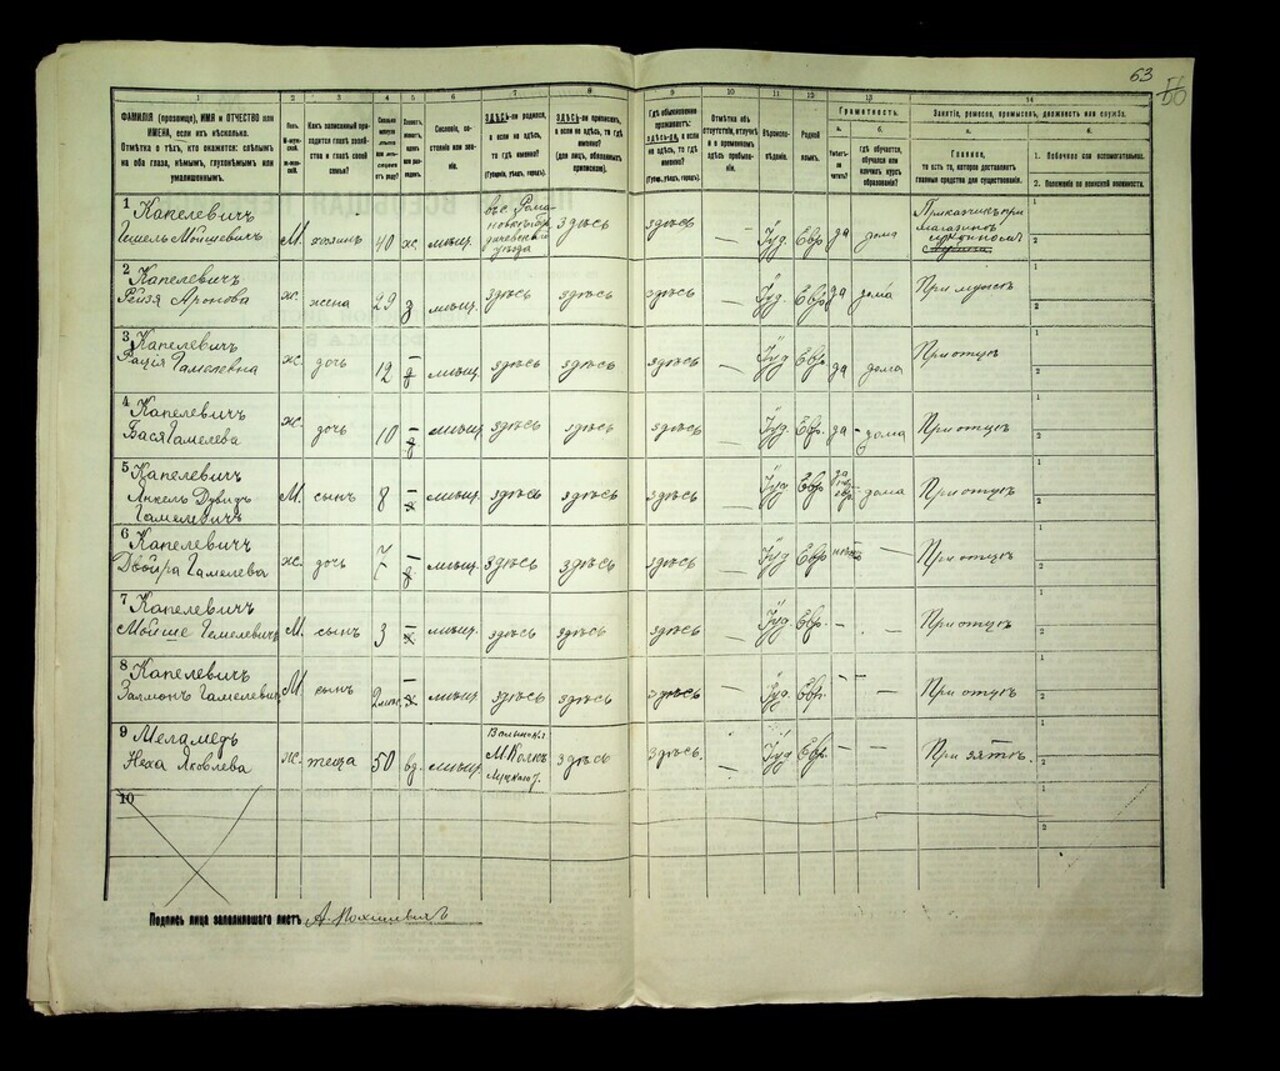 63
1 2 3 4 5 6 7 8 9 10 11 12 13 14
ФАМИЛІЯ (прозвище), ИМЯ и ОТЧЕСТВО или
ИМЕНА, если ихъ нѣсколько.
Отмѣтка о тѣхъ, кто окажется: слѣпымъ
на оба глаза, нѣмымъ, глухонѣмымъ или
умалишеннымъ.
Полъ.
М-муж-
ской.
Ж-жен-
скій.
Какъ записанный при-
ходится главѣ хозяй-
ства и главѣ своей
семьи?
Сословіе, со-
стояніе или зва-
ніе.
ЗДѢСЬ-ли родился,
а если не здѣсь,
то гдѣ именно?
(Губернія, уѣздъ, городъ).
ЗДѢСЬ-ли приписанъ,
а если не здѣсь, то гдѣ
именно?
(для лицъ, обязанныхъ
припискою).
Гдѣ обыкновенно
проживаетъ:
здѣсь-ли, а если
не здѣсь, то гдѣ
именно?
(Губ., уѣздъ, городъ).
Отмѣтка объ
отсутствіи, отлучкѣ
и о временномъ
здѣсь пребыва-
ніи.
Вѣроиспо-
вѣданіе.
Родной
языкъ.
Грамотность.
а. б.
Умѣетъ-
ли
читать?
Гдѣ обучается,
обучался или
кончилъ курсъ
образованія?
Занятіе, ремесло, промыселъ, должность или служба.
а. б.
Главное,
то есть то, которое доставляетъ
главныя средства для существованія.
1. Побочное или вспомогательное.
2. Положеніе по воинской повинности.
1 Капелевичъ
Гешель Мойшевичъ М. хозяинъ 40 ж. мѣщ. здѣсь здѣсь — Іуд. Евр. да дома
Приказчикъ при
магазинѣ
2 Капелевичъ
Рейзя Аронова ж. жена 29 з мѣщ. здѣсь здѣсь здѣсь — Іуд. Евр. да дома При мужѣ
3 Капелевичъ
Гамелевна ж. дочь 12 — мѣщ. здѣсь здѣсь здѣсь — Іуд Евр. да дома При отцѣ
4 Капелевичъ
Бася Гамелева ж. дочь 10 — мѣщ. здѣсь здѣсь здѣсь — Іуд. Евр. да - дома При отцѣ
5 Капелевичъ
Янкель Дувидъ М. сынъ 8 — мѣщ. здѣсь здѣсь здѣсь — Іуд Евр да - дома При отцѣ
Гамелевичъ
6 Капелевичъ
Двойра Гамелева ж. дочь 7 — мѣщ. здѣсь здѣсь здѣсь — Іуд Евр нѣтъ — При отцѣ
7 Капелевичъ
Мойше Гемелевичъ М. сынъ 3 — мѣщ. здѣсь здѣсь здѣсь — Іуд. Евр. — — При отцѣ
8 Капелевичъ
Залмонъ Гамелевичъ М. сынъ — мѣщ. здѣсь здѣсь здѣсь — Іуд. Евр. — — При отцѣ
9 Меламедъ
Неха Яковлева ж. теща 50 вд. мѣщ. М. Колкъ здѣсь здѣсь. — Іуд Евр. — — При зятѣ.
10
Подпись лица заполнявшаго листъ